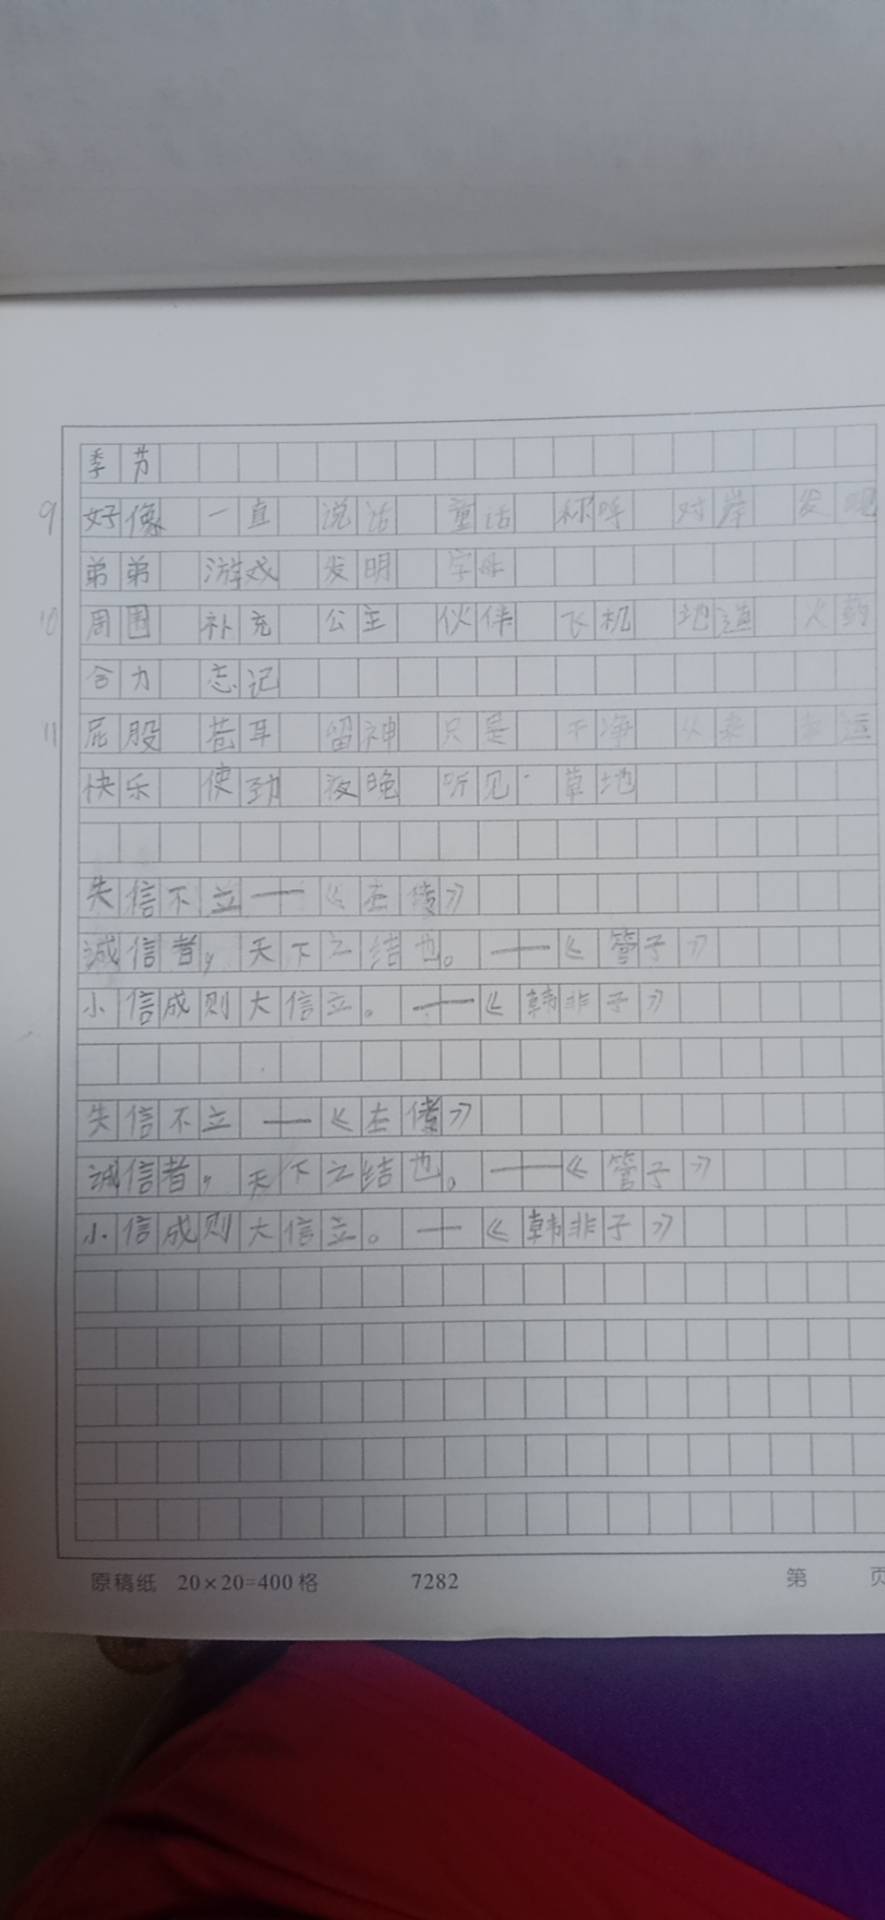 季节
9 好像 一直 说话 童话 称呼 对岸 发现
弟弟 游戏 发明 字母
10 周围 补充 公主 伙伴 飞机 地道 火药
合力 忘记
11 屁股 苍耳 留神 只是 干净 从来 幸运
快乐 使劲 夜晚 听见 草地
失信不立——《左传》
诚信者，天下之结也。——《管子》
小信成则大信立。——《韩非子》
失信不立——《左传》
诚信者，天下之结也。——《管子》
小信成则大信立。——《韩非子》
原稿纸 20×20=400格 7282 第 页